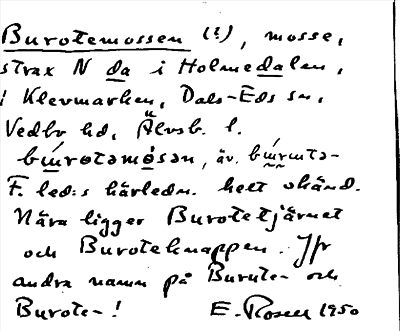 Burotemossen (!), mosse,
strax N da i Holmedalen,
i Klevmarken, Dals-Eds sn,
Vedbo hd, Älvsb. l.
bu̲rotəmo̲sən, äv. bu̲rutə-
F. led:s härledn. helt okänd.
Nära ligger Burotetjärnet
och Boroteknappen. Jfr
andra namn på Burute- och
Burote-! E. Rosell 1950